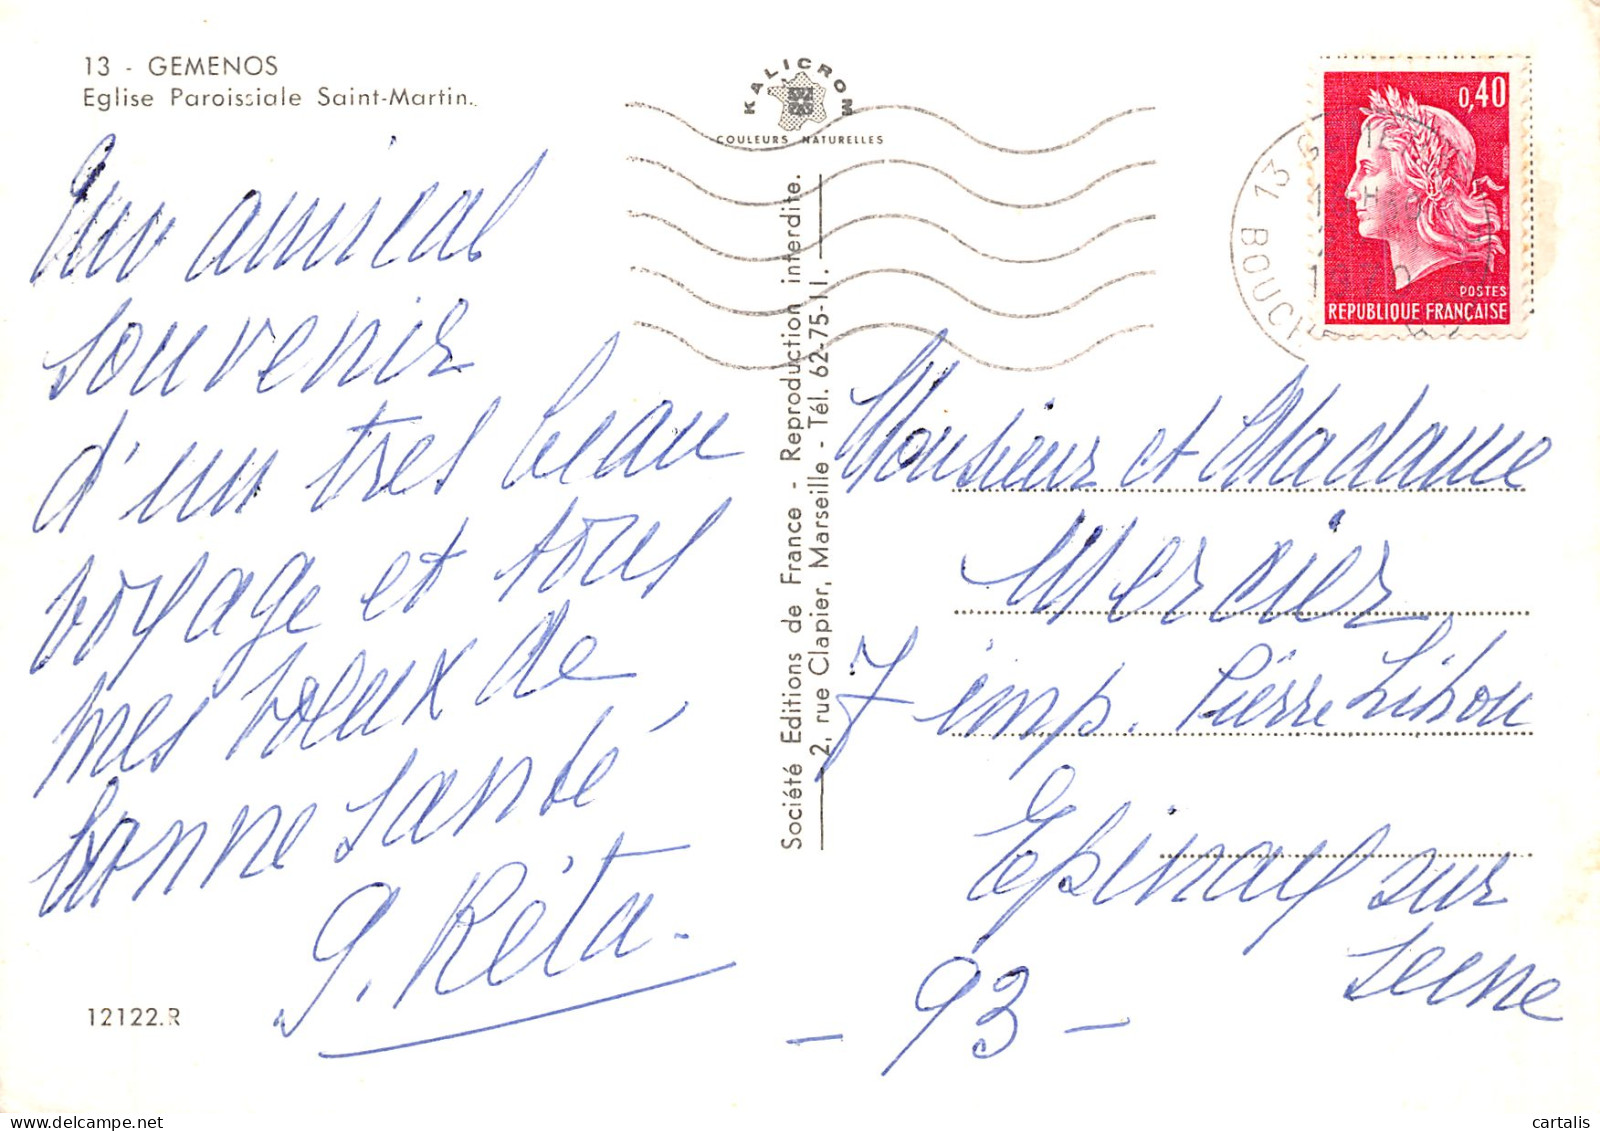 13 - GEMENOS
Eglise Paroissiale Saint-Martin.
KALICROM
COULEURS NATURELLES
0,40
POSTES
REPUBLIQUE FRANÇAISE
13 GEME
BOUCH
1970
Un amical
souvenir
d'un tres beau
voyage et tous
mes voeux de
bonne santé,
G. Réta.
12122.R
Société Editions de France - Reproduction interdite.
2, rue Clapier, Marseille - Tél. 62-75-11.
Monsieur et Madame
Mercier
7 imp. Pierre Lihou
Epinay sur
Seine
- 93 -
cartalis